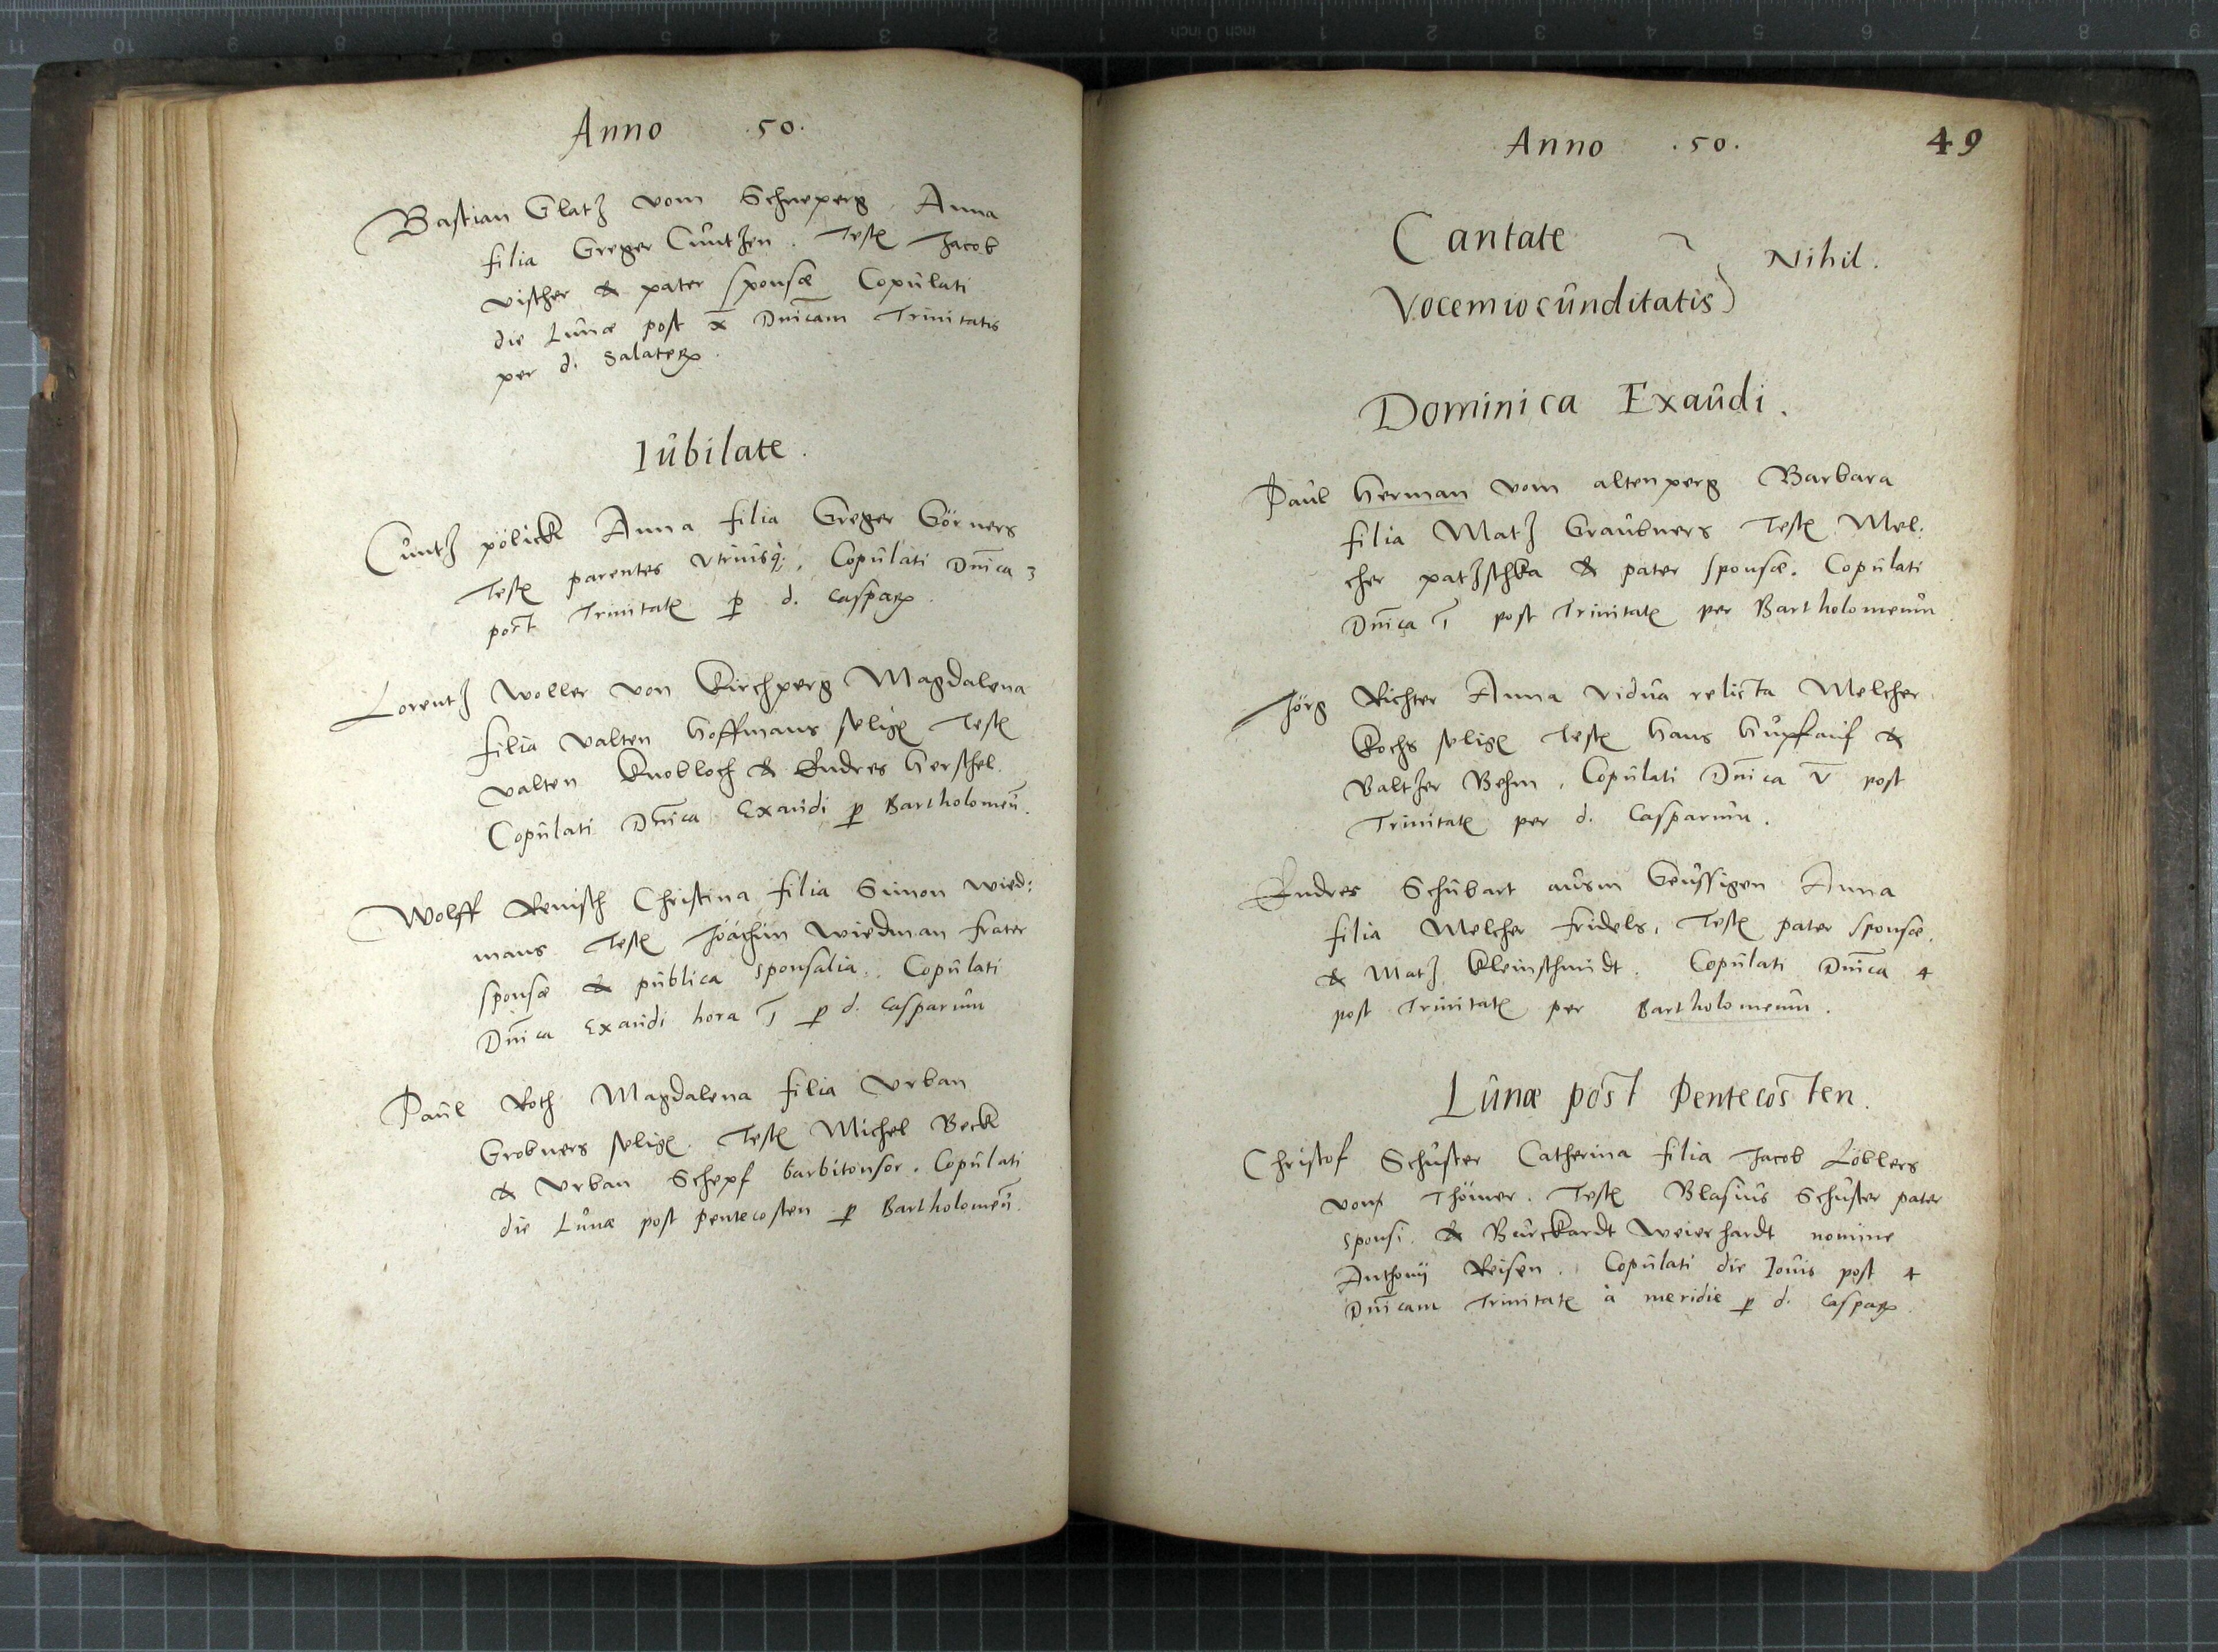 Anno .50.
Bastian Glatz vom Schneperg Anna
filia Greger Cuntzen. Test Jacob
vischer & pater sponsæ Copulati
die Lunæ post x Dnicam Trinitatis
per d. Salater
Iubilate.
Cuntz pölickl Anna filia Greger Görners
Test parentes vtriusq;, Copulati Dnica 3
post Trinitat p d. Caspar.
Lorentz Woller von Kirchperg Magdalena
filia valten Hoffmans selig Test
valten Knobloch & Endres Herschel.
Copulati Dnica Exaudi p Bartholomeu.
Wolff Renisch Christina filia Simon Wied:
mans Test Joachim Wiedman frater
sponsæ & publica sponsalia. Copulati
Dnica Exaudi hora I p d. Casparum
Paul Roth Magdalena filia Vrban
Grobners selig. Test Michel Beck
& Vrban Schepf barbitonsor. Copulati
die Lunæ post Pentecosten p Bartholomeu.
Anno .50. 49
Cantate
Nihil.
Vocemiocunditatis
Dominica Exaudi.
Paul Herman vom altenperg Barbara
filia Matz Graubners Test Mel:
cher patzschka & pater sponsæ. Copulati
Dnica I post Trinitat per Bartholomeum
Jörg Richter Anna vidua relicta Melcher
Kochs selig Test Hans Hupfauf &
Baltzer Behm. Copulati Dnica V post
Trinitat per d. Casparum.
Endres Schubart ausm Geussigen Anna
filia Melcher Fridels, Test pater sponsæ.
& Matz Kleinschmidt. Copulati Dnica 4
post Trinitat per Bartholomeum.
Lunæ post Pentecosten.
Christof Schuster Catherina filia Jacob Löblers
von Thömer. Test Blasius Schuster pater
sponsi & Burckardt Weierhardt nomine
Anthonij Reisen. Copulati die Iouis post 4
Dnicam Trinitat à meridie p d. Caspar.